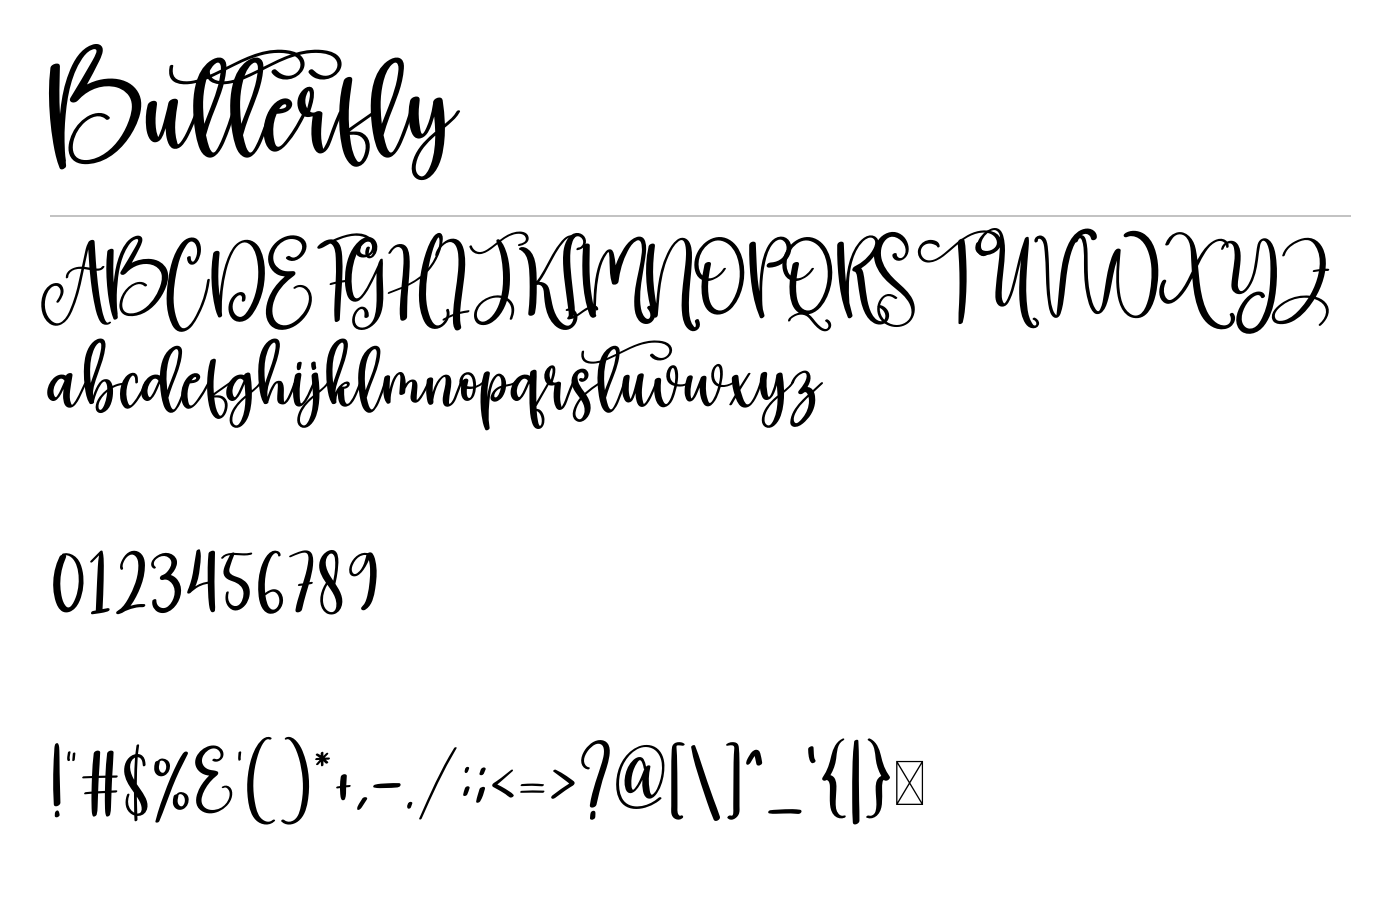 Butterfly
ABCDEFGHIJKLMNOPQRSTUVWXYZ
abcdefghijklmnopqrstuvwxyz
0123456789
!"#$%&'()*+,-./:;<=>?@[\]^_`{|}